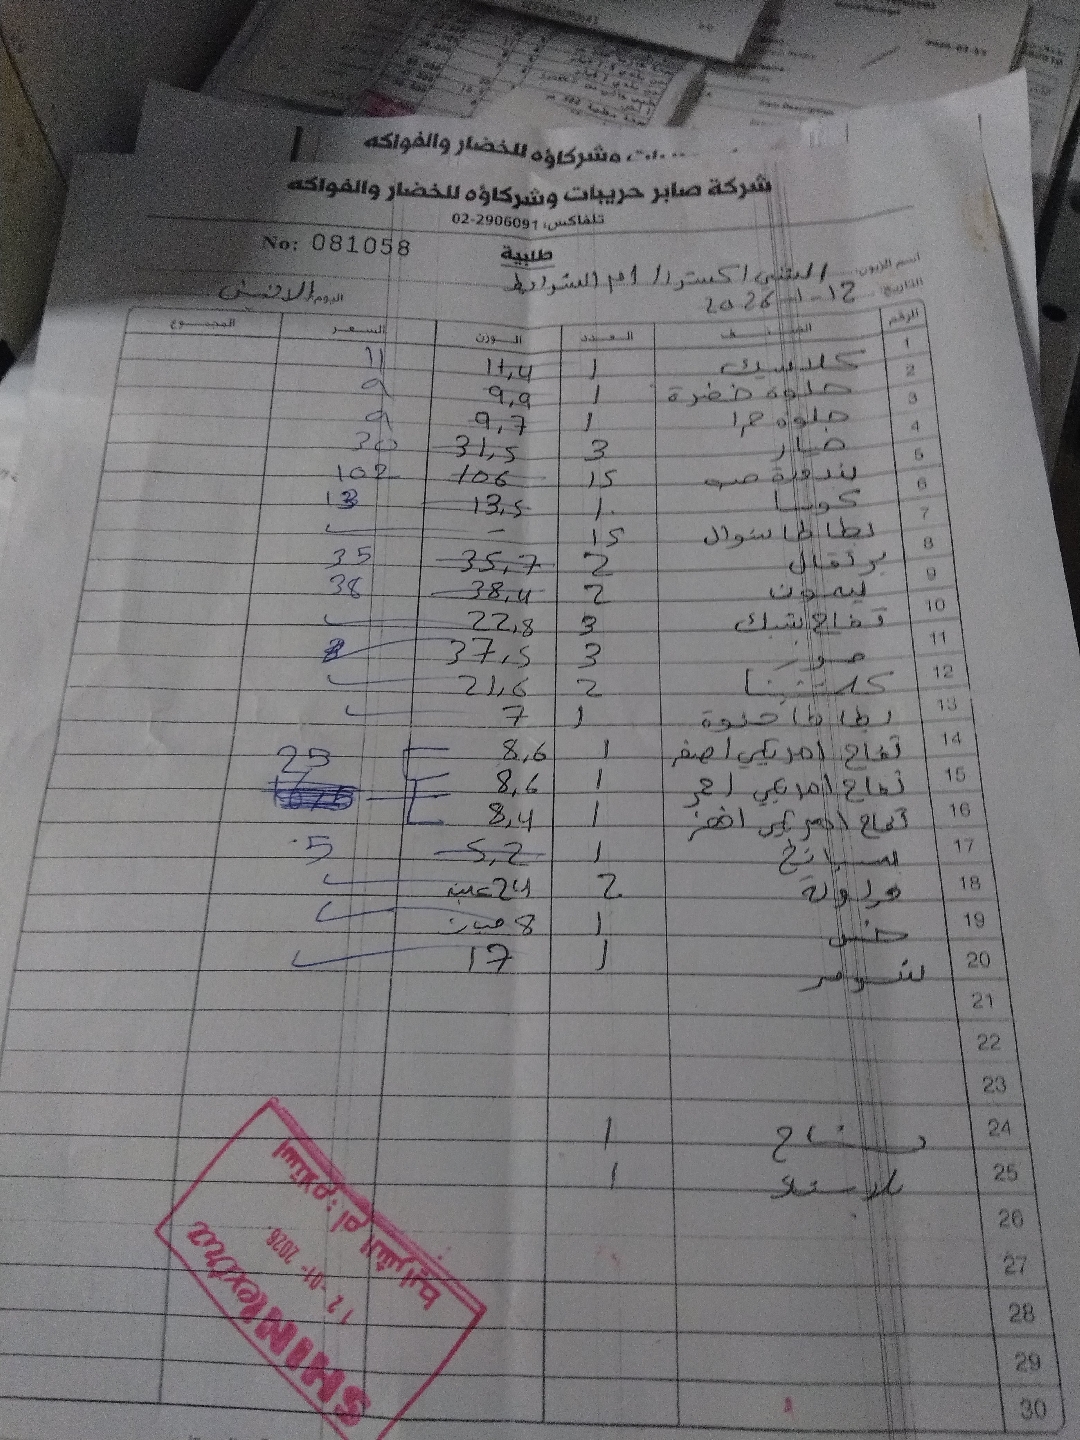 وشركاؤه للخضار والفواكه
شركة صابر حريبات وشركاؤه للخضار والفواكه
تلفاكس: 02-2906091
No: 081058
طلبية
اسم الزبون: الشني اكسترا / ام الشرايط
التاريخ: 12-1-2026 اليوم: الاثنين
الرقم الصنف العدد الوزن السعر المجموع
1 كلاسيك 1 11,4 11
2 حلوة خضرة 1 9,9 9
3 حلوه حمرا 1 9,7 9
4 خيار 3 31,5 30
5 بندورة حب 15 106 102
6 كوسا 1 13,5 13
7 بطاطا شوال 15 -
8 برتقال 2 35,7 35
9 ليمون 2 38,4 38
10 تفاح بشبك 3 22,8
11 موز 3 37,5
12 كلمنتينا 2 21,6
13 بطاطا حلوة 1 7
14 تفاح امريكي اصفر 1 8,6 25
15 تفاح امريكي احمر 1 8,6
16 تفاح امريكي اخضر 1 8,4
17 سبانخ 1 5,2 5
18 فراولة 2 24 علبة
19 خس 1 8 حبات
20 شومر 1 17
21
22
23
24 1
25 1
26
27
28
29
30
استلام: ام الشرايط
12-01-2026
SHINI extra